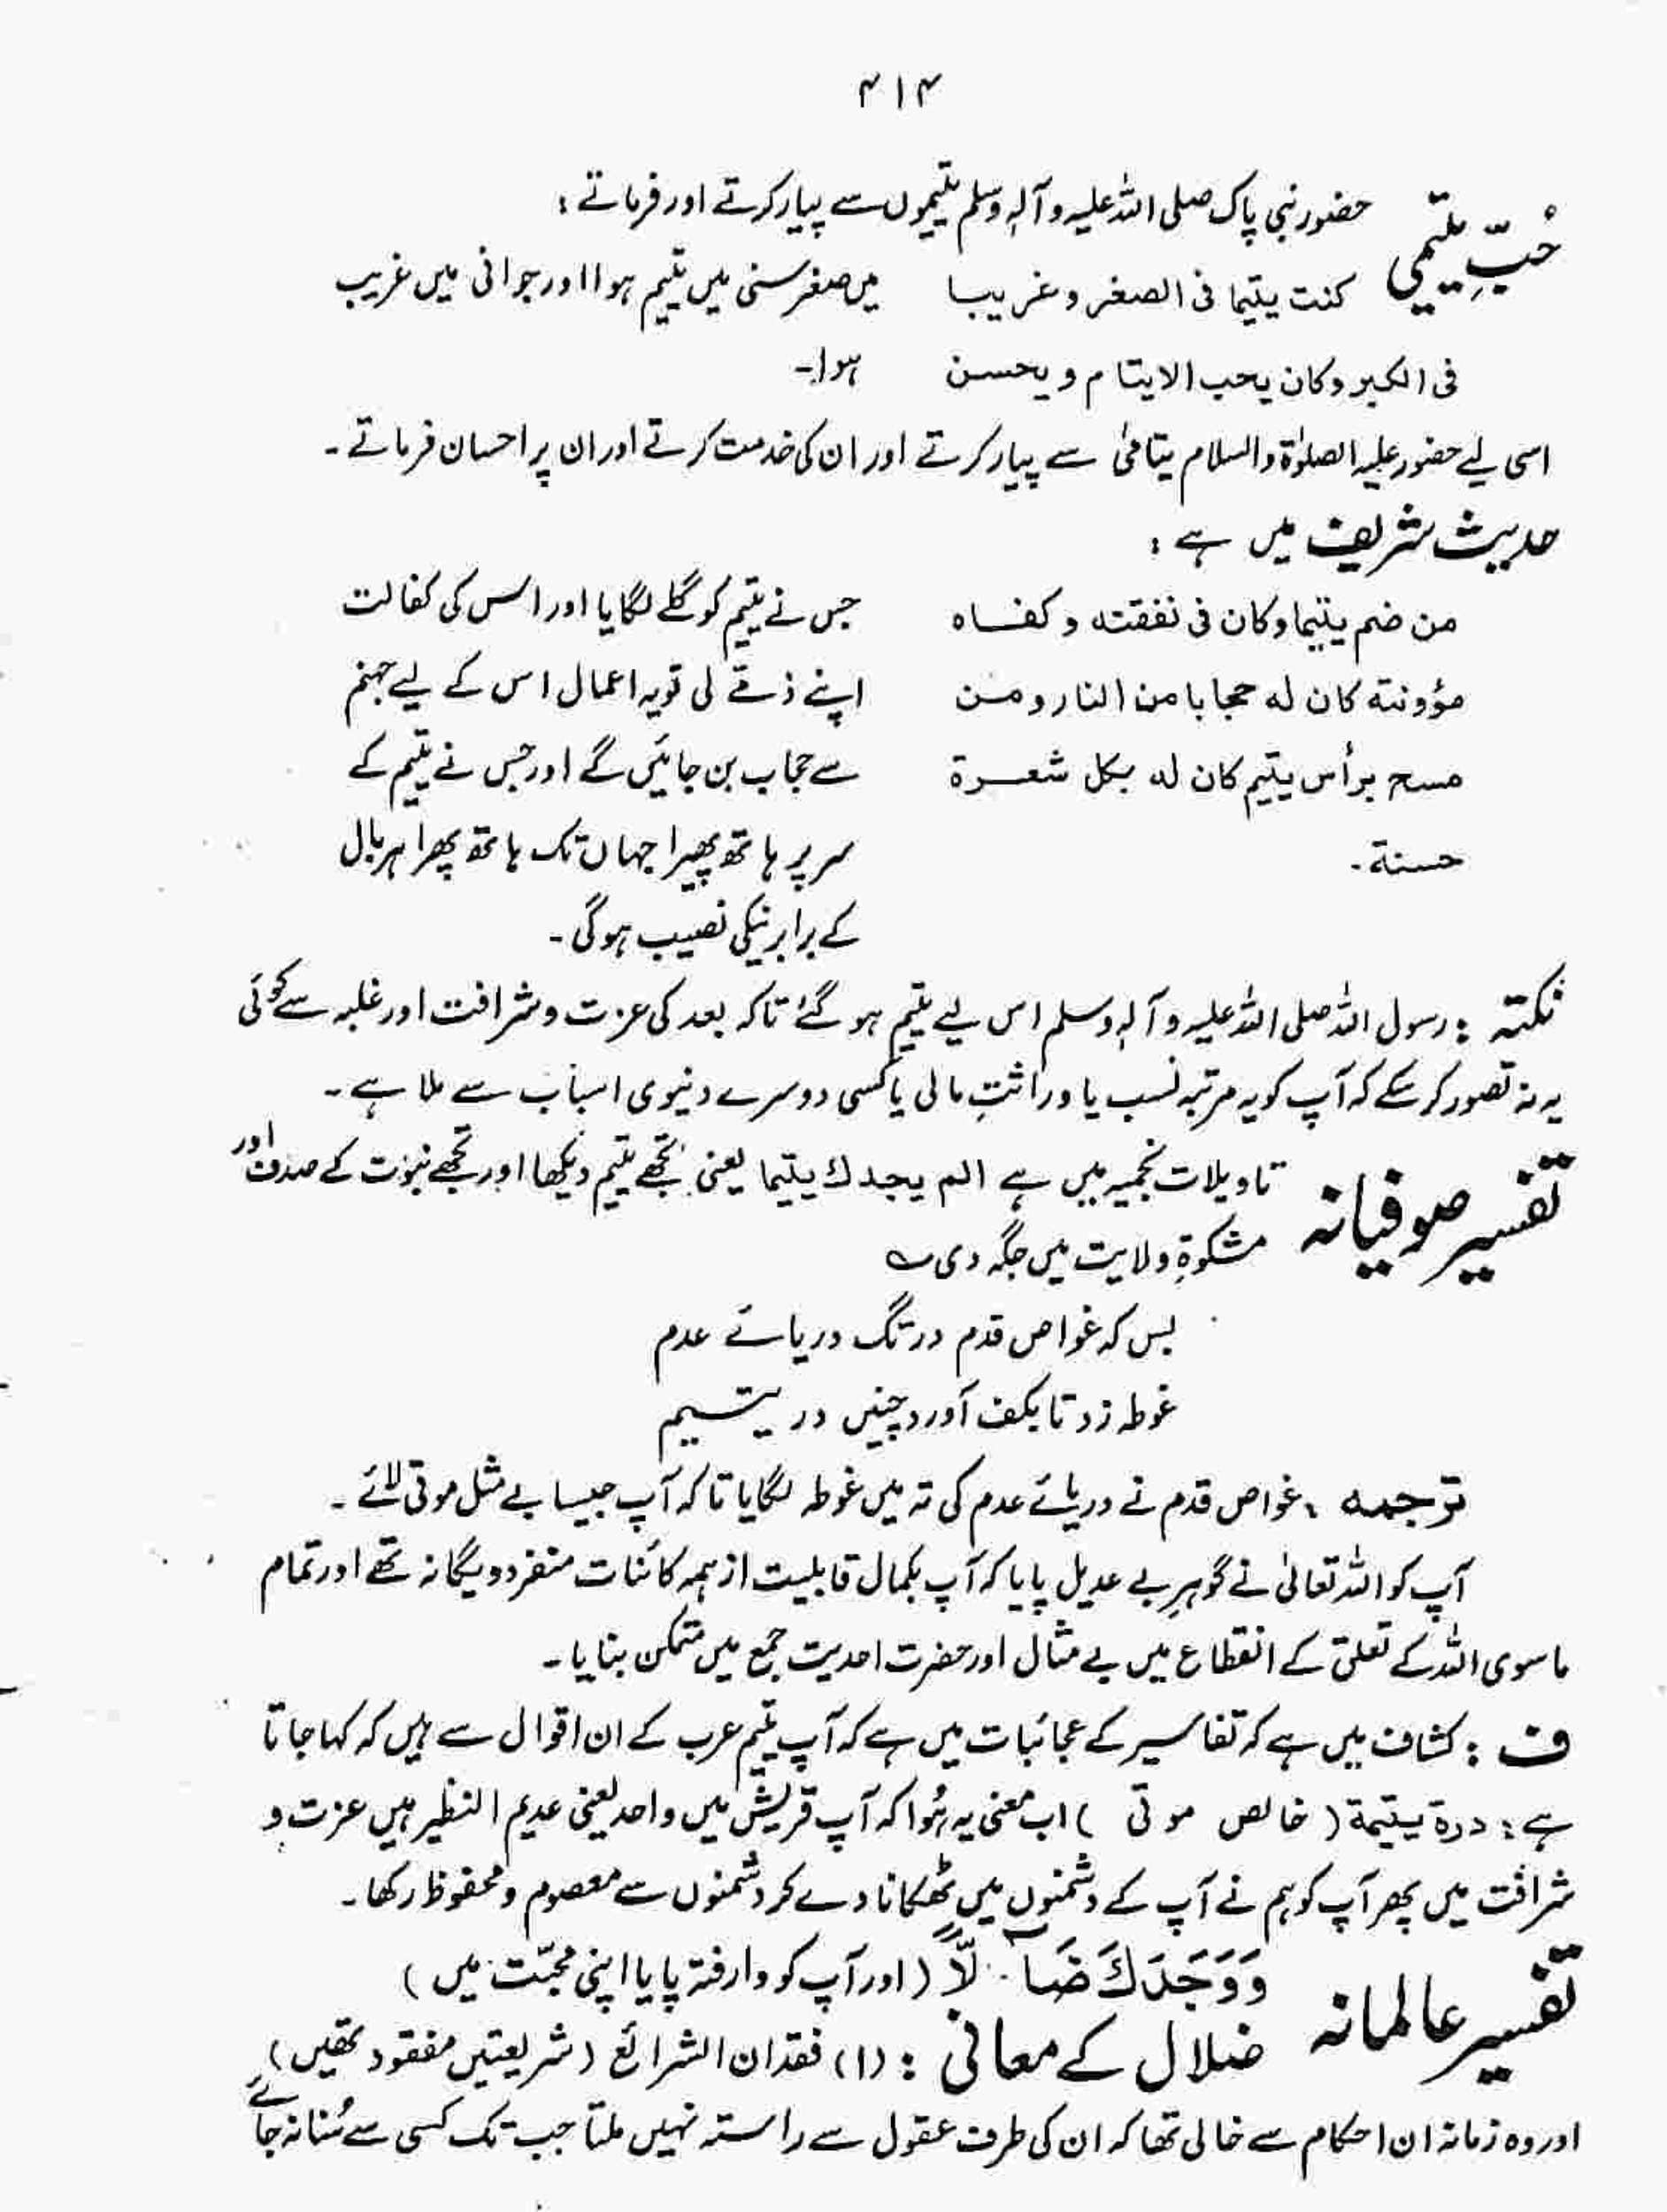 ۴۱۴
حُبِّ یتیمی حضور نبی پاک صلی اللہ علیہ وآلہٖ وسلم یتیموں سے پیار کرتے اور فرماتے :
کنت یتیما فی الصغر و غریبا میں صغر سنی میں یتیم ہوا اور جوانی میں غریب
فی الکبر وکان یحب الایتام و یحسن ہوا۔
اسی لیے حضور علیہ الصلوٰۃ والسلام یتامیٰ سے پیار کرتے اور ان کی خدمت کرتے اور ان پر احسان فرماتے ۔
حدیث شریف میں ہے :
من ضم یتیما وکان فی نفقته و کفاہ جس نے یتیم کو گلے لگایا اور اس کی کفالت
مؤونته کان له حجابا من النار و من اپنے ذمّے لی تو یہ اعمال اس کے لیے جہنم
مسح برأس یتیم کان له بکل شعرة سے حجاب بن جائیں گے اور جس نے یتیم کے
حسنة ۔ سر پر ہاتھ پھیرا جہاں تک ہاتھ پھرا ہر بال
کے برابر نیکی نصیب ہوگی ۔
نکتہ : رسول اللہ صلی اللہ علیہ وآلہٖ وسلم اس لیے یتیم ہو گئے تاکہ بعد کی عزت و شرافت اور غلبہ سے کوئی
یہ نہ تصور کر سکے کہ آپ کو یہ مرتبہ نسب یا وراثتِ مالی یا کسی دوسرے دنیوی اسباب سے ملا ہے ۔
تفسیر صوفیانہ تاویلات نجمیہ میں ہے الم یجدك یتیما یعنی تجھے یتیم دیکھا اور تجھے نبوت کے صدف اور
مشکوۃِ ولایت میں جگہ دی ؎
بس کہ غواص قدم در تگ دریائے عدم
غوطہ زد تا بکف آورد چنیں در یتیم
ترجمہ : غواص قدم نے دریائے عدم کی تہ میں غوطہ لگایا تاکہ آپ جیسا بے مثل موتی لائے ۔
آپ کو اللہ تعالیٰ نے گوہرِ بے عدیل پایا کہ آپ بکمال قابلیت از ہمہ کائنات منفرد و یگانہ تھے اور تمام
ماسوی اللہ کے تعلق کے انقطاع میں بے مثال اور حضرت احدیت جمع میں متمکن بنایا ۔
ف : کشاف میں ہے کہ تفاسیر کے عجائبات میں ہے کہ آپ یتیم عرب کے ان اقوال سے ہیں کہ کہا جاتا
ہے : درة یتیمة ( خالص موتی ) اب معنیٰ یہ ہُوا کہ آپ قریش میں واحد یعنی عدیم النظیر ہیں عزت و
شرافت میں پھر آپ کو ہم نے آپ کے دشمنوں میں ٹھکانا دے کر دشمنوں سے معصوم و محفوظ رکھا ۔
تفسیر عالمانہ وَوَجَدَكَ ضَآلًّا ( اور آپ کو وارفتہ پایا اپنی محبّت میں )
ضلال کے معانی : (۱) فقدان الشرائع ( شریعتیں مفقود تھیں )
اور وہ زمانہ ان احکام سے خالی تھا کہ ان کی طرف عقول سے راستہ نہیں ملتا جب تک کسی سے سُنا نہ جائے